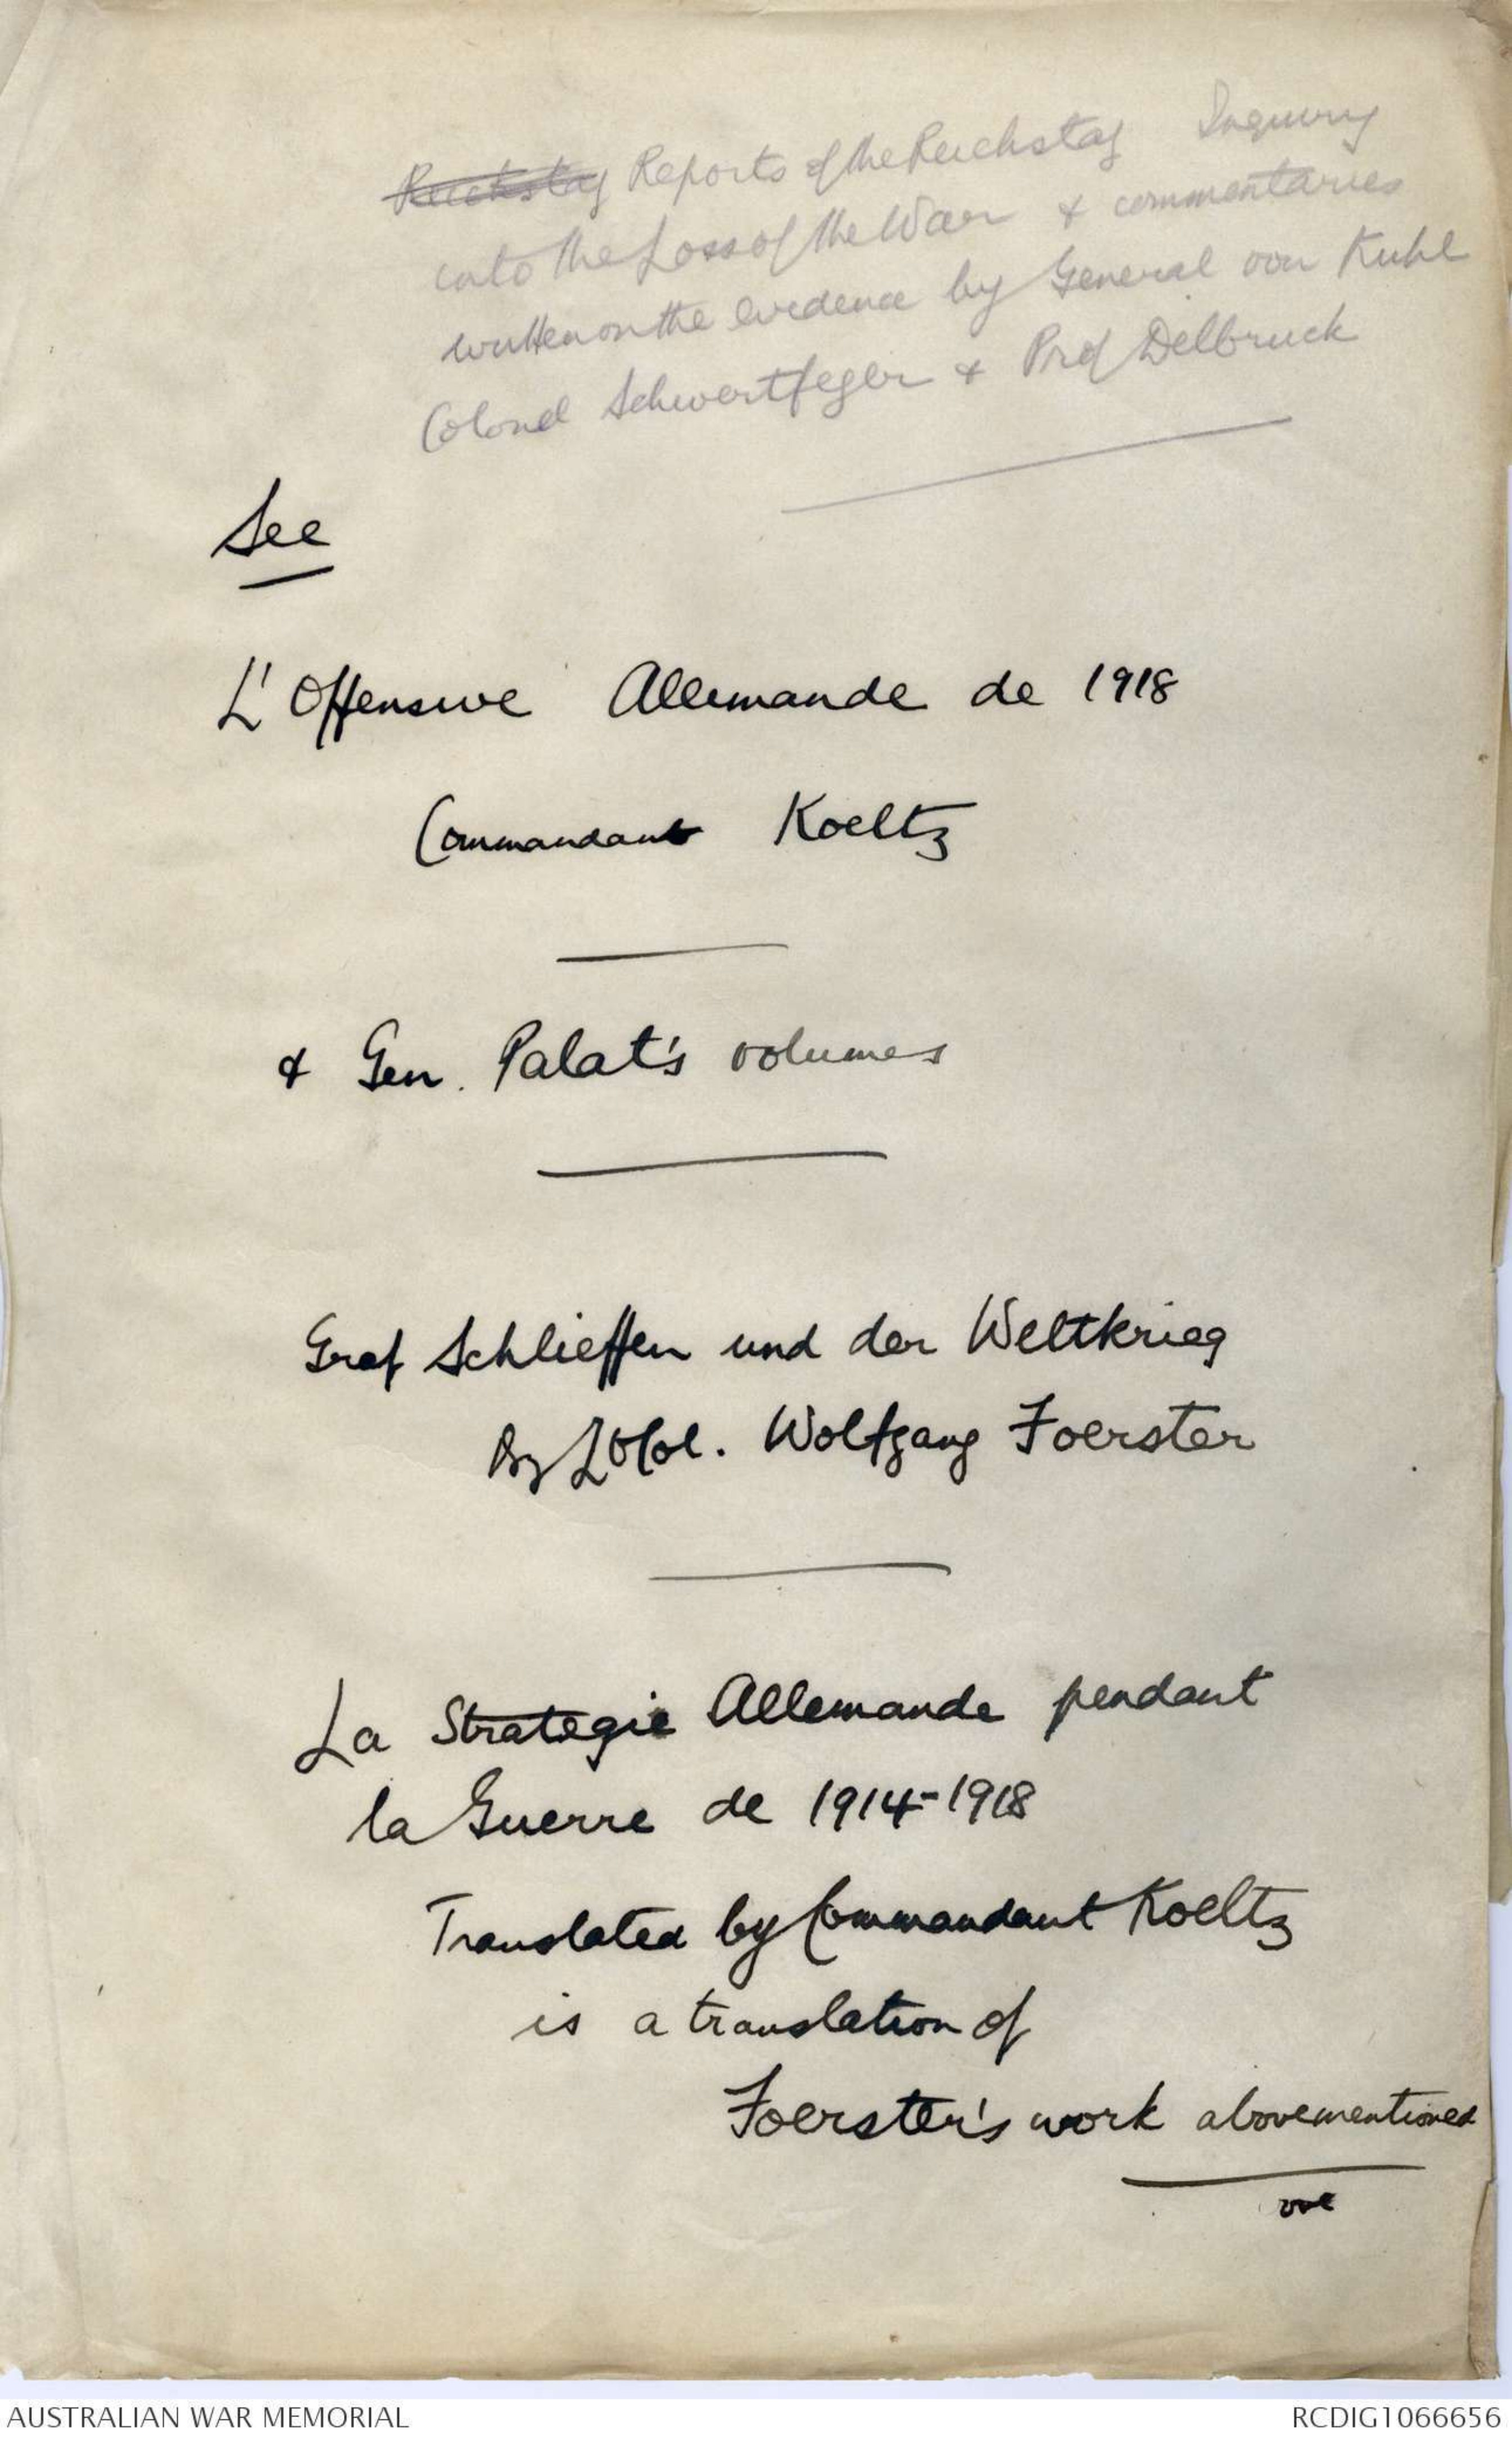 Reichstag Reports of the Reichstag Inquiry
into the Loss of the War & commentaries
written on the evidence by General von Kuhl
Colonel Schwertfeger & Prof Delbruck
See
L'Offensive Allemande de 1918
Commandant Koeltz
& Gen. Palat's volumes
Graf Schlieffen und der Weltkrieg
By Lt Col. Wolfgang Foerster
La Strategie Allemande pendant
la Guerre de 1914-1918
Translated by Commandant Koeltz
is a translation of
Foerster's work abovementioned
AUSTRALIAN WAR MEMORIAL
RCDIG1066656